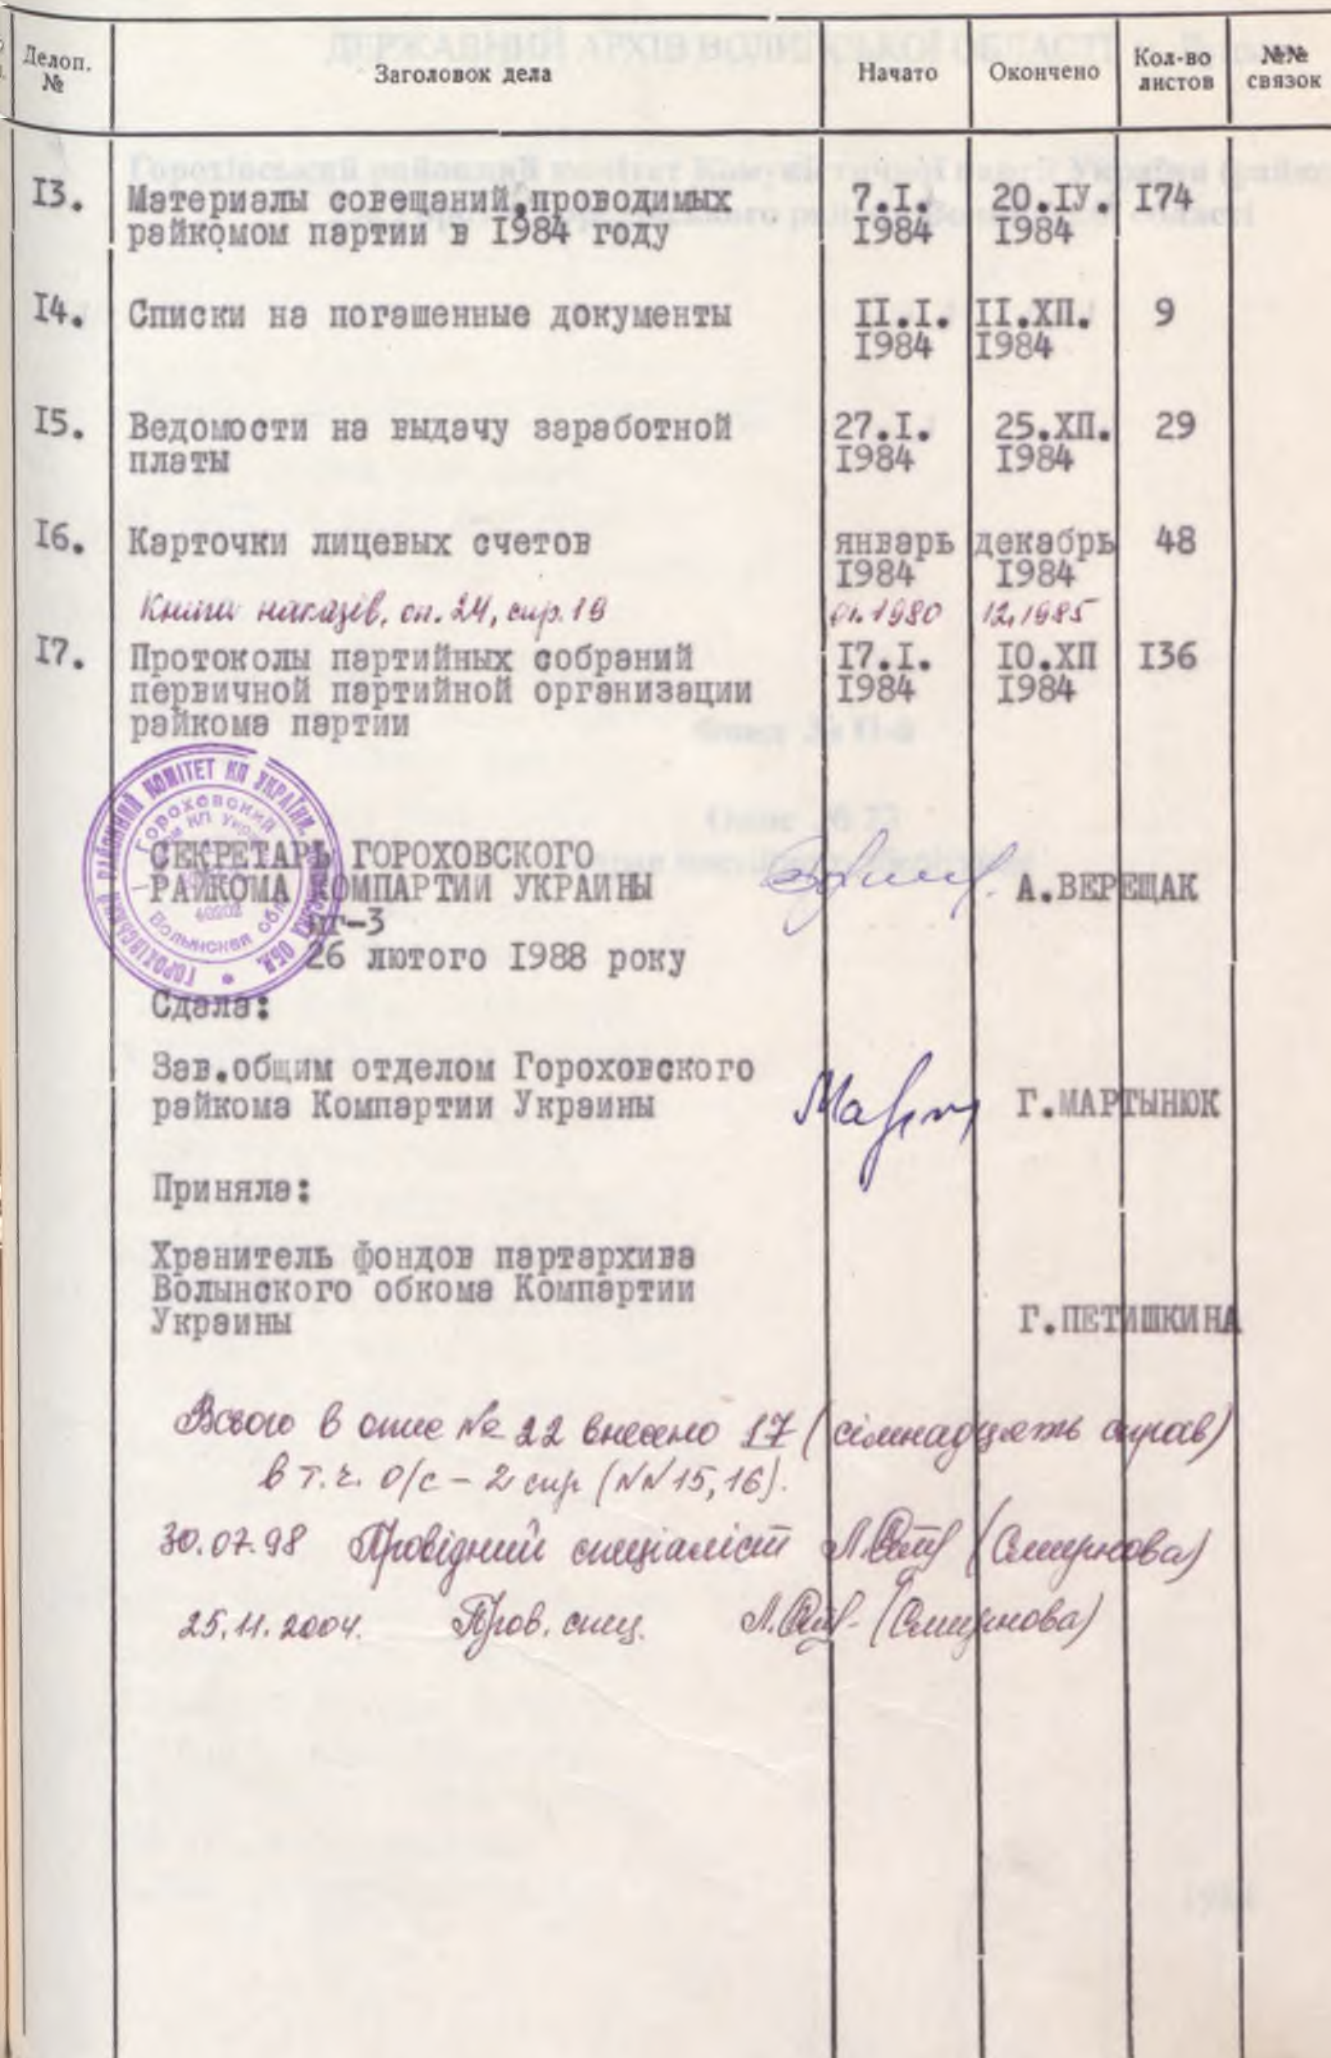 Делоп. № Заголовок дела Начато Окончено Кол-во листов №№ связок
I3. Материалы совещаний,проводимых 7.I. 20.IУ. I74
райкомом партии в I984 году I984 I984
I4. Списки на погашенные документы II.I. II.ХП. 9
I984 I984
I5. Ведомости на выдачу заработной 27.I. 25.ХП. 29
платы I984 I984
I6. Карточки лицевых счетов январь декабрь 48
I984 I984
Книга наказів, оп. 24, спр. 19 01.1980 12.1985
I7. Протоколы партийных собраний I7.I. I0.ХП I36
первичной партийной организации I984 I984
райкома партии
СЕКРЕТАРЬ ГОРОХОВСКОГО
РАЙКОМА КОМПАРТИИ УКРАИНЫ А.ВЕРЕЩАК
пт-3
26 лютого I988 року
Сдала:
Зав.общим отделом Гороховского
райкома Компартии Украины Г.МАРТЫНЮК
Приняла:
Хранитель фондов партархива
Волынского обкома Компартии
Украины Г.ПЕТИШКИНА
Всього в опис № 22 внесено 17 (сімнадцять справ)
в т.ч. о/с - 2 спр (NN 15, 16).
30.07.98 Провідний спеціаліст (Смирнова)
25.11.2004. Пров. спец. (Смирнова)